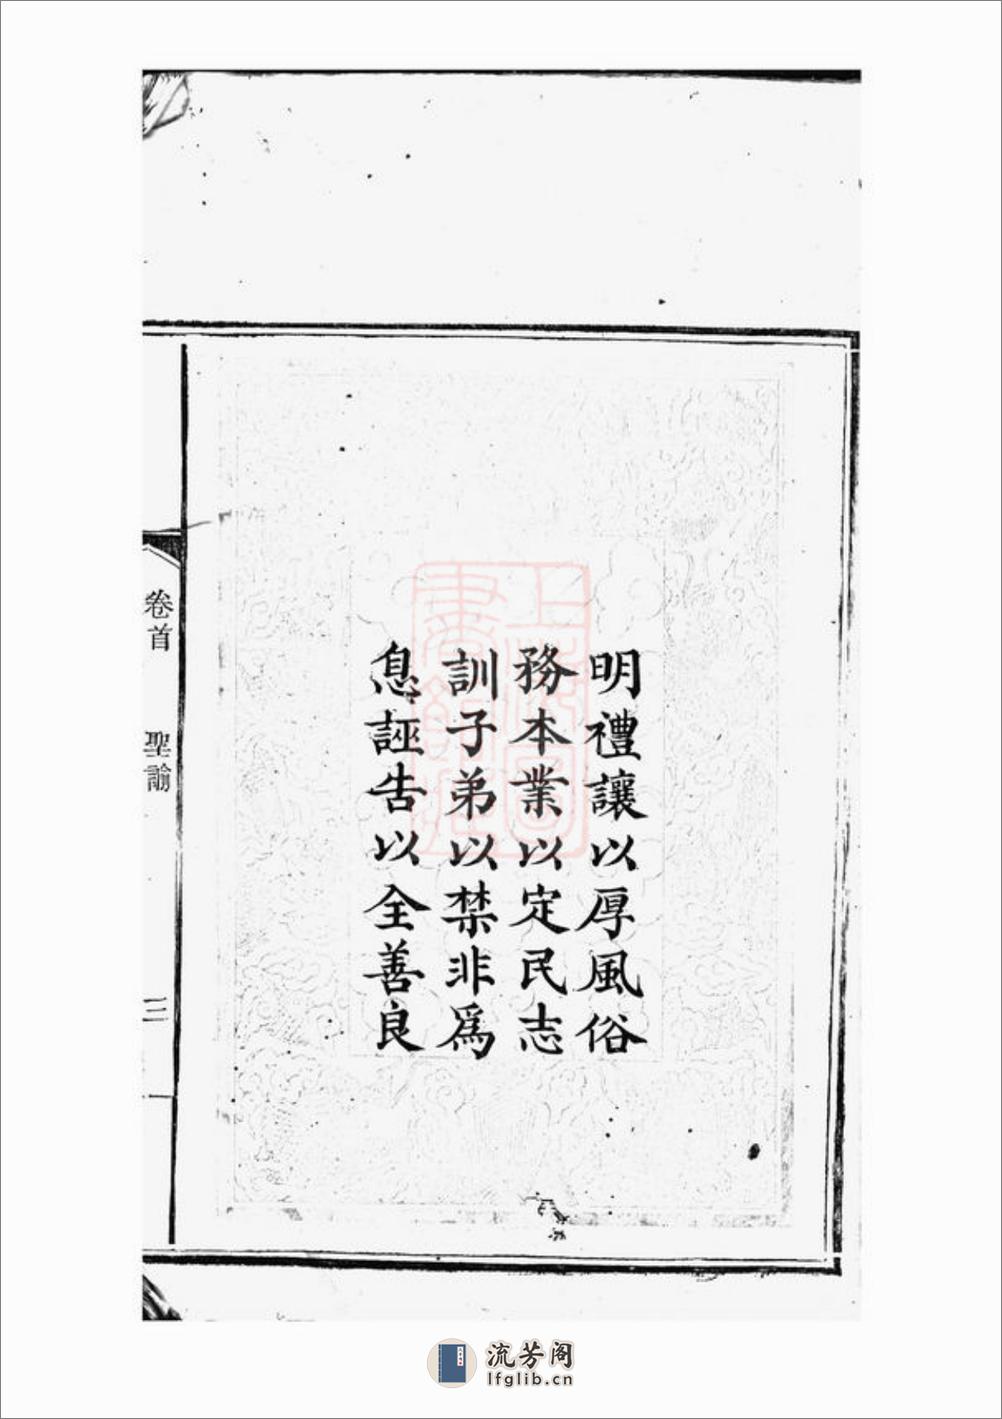 明禮讓以厚風俗
務本業以定民志
訓子弟以禁非爲
息誣告以全善良
卷首
聖諭
三
流芳阁
lfglib.cn